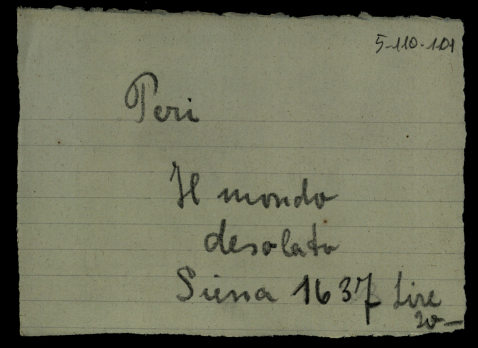 5-110-101
Peri
Il mondo
desolato
Siena 1637 Lire
20—